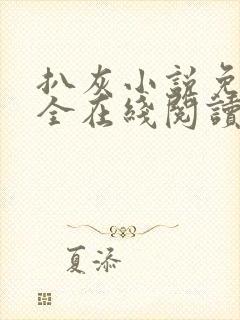 扒灰小説免
全在綫閱讀
夏添